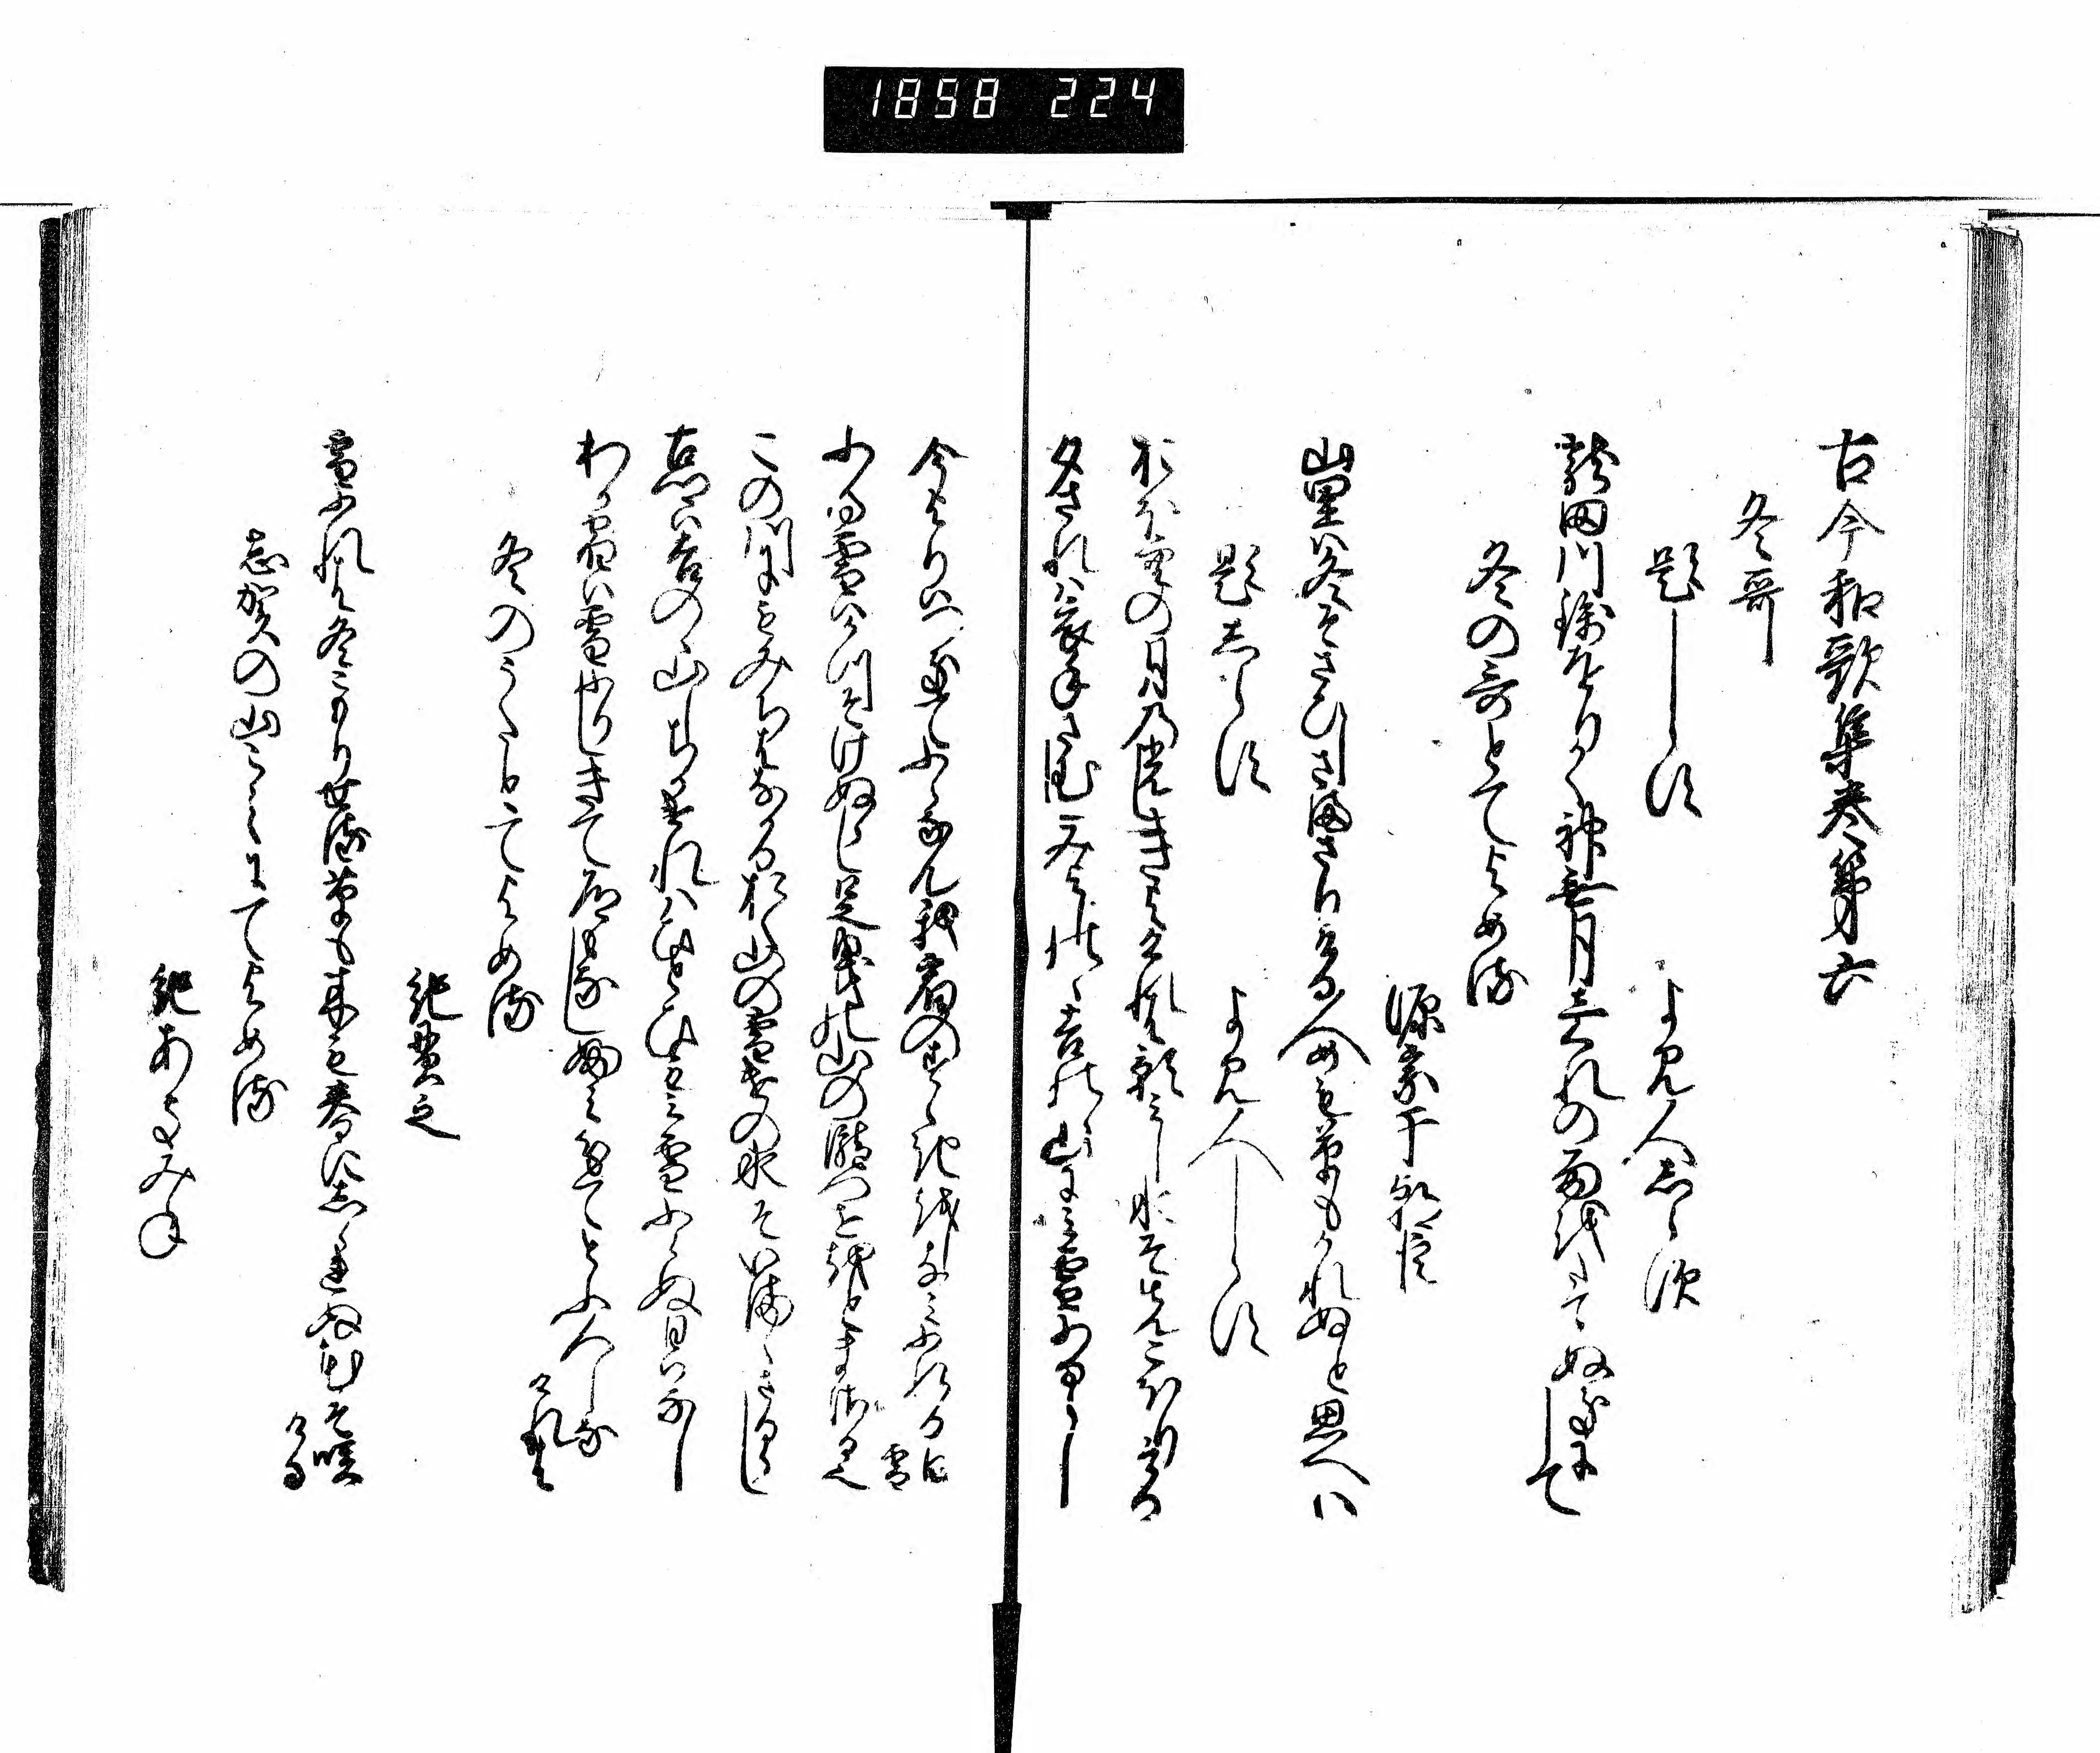 1858 224
古今和歌集巻第六
冬哥
題しらす　よみ人しらす
龍田川錦をりかく神無月しくれの雨をたてぬきにして
冬の哥とてよめる
源宗于朝臣
山里は冬そさひしさまさりける人めも草もかれぬと思へは
題しらす　よみ人しらす
おほ空の月の光しきよけれは影みし水そまつこほりける
夕されは衣手さむしみよしのゝ吉野の山にみ雪ふるらし
今よりはつきてふらなん我宿のすゝきをしなみふれる白雪
ふる雪はかつそけぬらし足曳の山の瀧つせをとまさる也
この川にもみちはなかるおく山の雪けの水そいまゝさるらし
古郷は吉野の山しちかけれはひとひもみ雪ふらぬ日はなし
わか宿は雪ふりしきて道もなしふみわけてとふ人しなけれは
冬のうたとてよめる
紀貫之
雪ふれは冬こもりせる草も木も春にしられぬ花そ咲ける
志賀の山こえにてよめる
紀あきみね